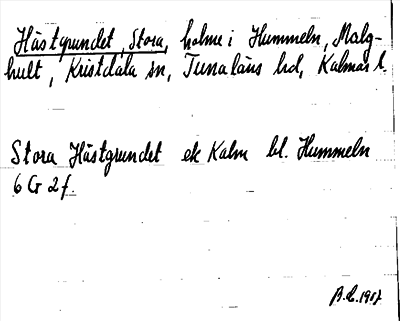 Hästgrundet, Stora, holme i Hummeln, Malg-
hult, Kristdala sn, Tunaläns hd, Kalmar l.
Stora Hästgrundet ek Kalm bl. Hummeln
6 G 2 f.
1957